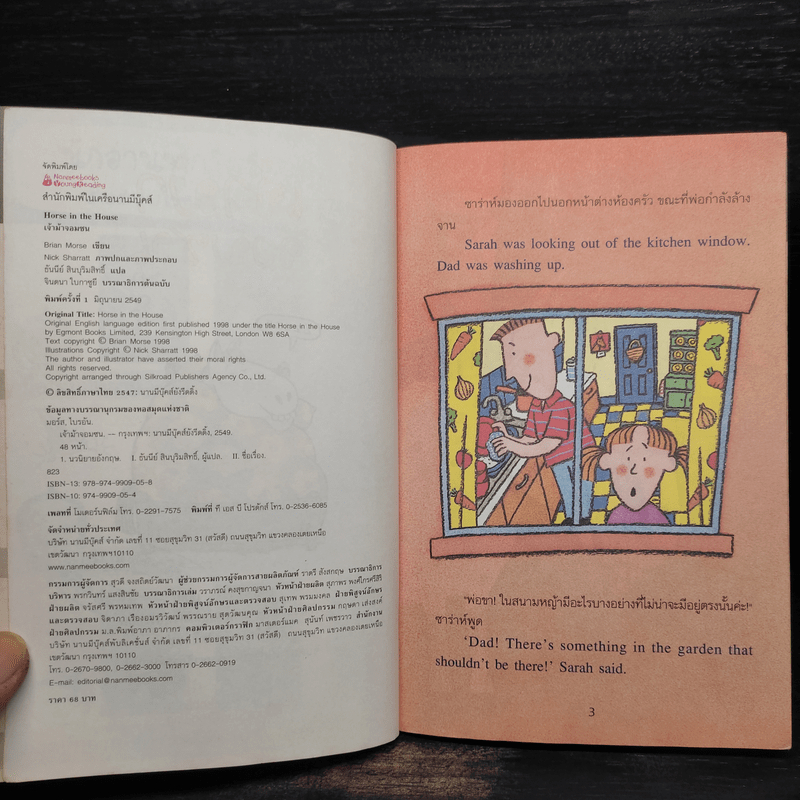 จัดพิมพ์โดย
Nanmeebooks
YoungReading
สำนักพิมพ์ในเครือนานมีบุ๊คส์
Horse in the House
เจ้าม้าจอมซน
Brian Morse เขียน
Nick Sharratt ภาพปกและภาพประกอบ
ธันนีย์ สินบุริมสิทธิ์ แปล
จินตนา ใบกาซูยี บรรณาธิการต้นฉบับ
พิมพ์ครั้งที่ 1 มิถุนายน 2549
Original Title: Horse in the House
Original English language edition first published 1998 under the title Horse in the House
by Egmont Books Limited, 239 Kensington High Street, London W8 6SA
Text copyright © Brian Morse 1998
Illustrations Copyright © Nick Sharratt 1998
The author and illustrator have asserted their moral rights
All rights reserved.
Copyright arranged through Silkroad Publishers Agency Co., Ltd.
© ลิขสิทธิ์ภาษาไทย 2547: นานมีบุ๊คส์ยังรีดดิ้ง
ข้อมูลทางบรรณานุกรมของหอสมุดแห่งชาติ
มอร์ส, ไบรอัน.
เจ้าม้าจอมซน. -- กรุงเทพฯ: นานมีบุ๊คส์ยังรีดดิ้ง, 2549.
48 หน้า.
1. นวนิยายอังกฤษ. I. ธันนีย์ สินบุริมสิทธิ์, ผู้แปล. II. ชื่อเรื่อง.
823
ISBN-13: 978-974-9909-05-8
ISBN-10: 974-9909-05-4
เพลทที่ โมเดอร์นฟิล์ม โทร. 0-2291-7575 พิมพ์ที่ ที เอส บี โปรดักส์ โทร. 0-2536-6085
จัดจำหน่ายทั่วประเทศ
บริษัท นานมีบุ๊คส์ จำกัด เลขที่ 11 ซอยสุขุมวิท 31 (สวัสดี) ถนนสุขุมวิท แขวงคลองเตยเหนือ
เขตวัฒนา กรุงเทพฯ10110
www.nanmeebooks.com
กรรมการผู้จัดการ สุวดี จงสถิตย์วัฒนา ผู้ช่วยกรรมการผู้จัดการสายผลิตภัณฑ์ ราตรี สังสกฤษ บรรณาธิการ
บริหาร พรกวินทร์ แสงสินชัย บรรณาธิการเล่ม วราภรณ์ คงสุขกาญจนา หัวหน้าฝ่ายผลิต สุภาพร พงศ์ไกรศรีสิริ
ฝ่ายผลิต จรัสศรี พรหมเทพ หัวหน้าฝ่ายพิสูจน์อักษรและตรวจสอบ สุเทพ พรมมงคล ฝ่ายพิสูจน์อักษร
และตรวจสอบ จิดาภา เรืองอมรวิวัฒน์ พรรณราย สุดวัฒนคุณ หัวหน้าฝ่ายศิลปกรรม กฤษดา เส่งสงค์
ฝ่ายศิลปกรรม ม.ล.พิมพ์อาภา อาภากร คอมพิวเตอร์กราฟิก มาสเตอร์แมค สุนันท์ เพชรวาว สำนักงาน
บริษัท นานมีบุ๊คส์พับลิเคชั่นส์ จำกัด เลขที่ 11 ซอยสุขุมวิท 31 (สวัสดี) ถนนสุขุมวิท แขวงคลองเตยเหนือ
เขตวัฒนา กรุงเทพฯ 10110
โทร. 0-2670-9800, 0-2662-3000 โทรสาร 0-2662-0919
E-mail: editorial@nanmeebooks.com
ราคา 68 บาท
ซาร่าห์มองออกไปนอกหน้าต่างห้องครัว ขณะที่พ่อกำลังล้าง
จาน
Sarah was looking out of the kitchen window.
Dad was washing up.
"พ่อขา! ในสนามหญ้ามีอะไรบางอย่างที่ไม่น่าจะมีอยู่ตรงนั้นค่ะ!"
ซาร่าห์พูด
'Dad! There's something in the garden that
shouldn't be there!' Sarah said.
3